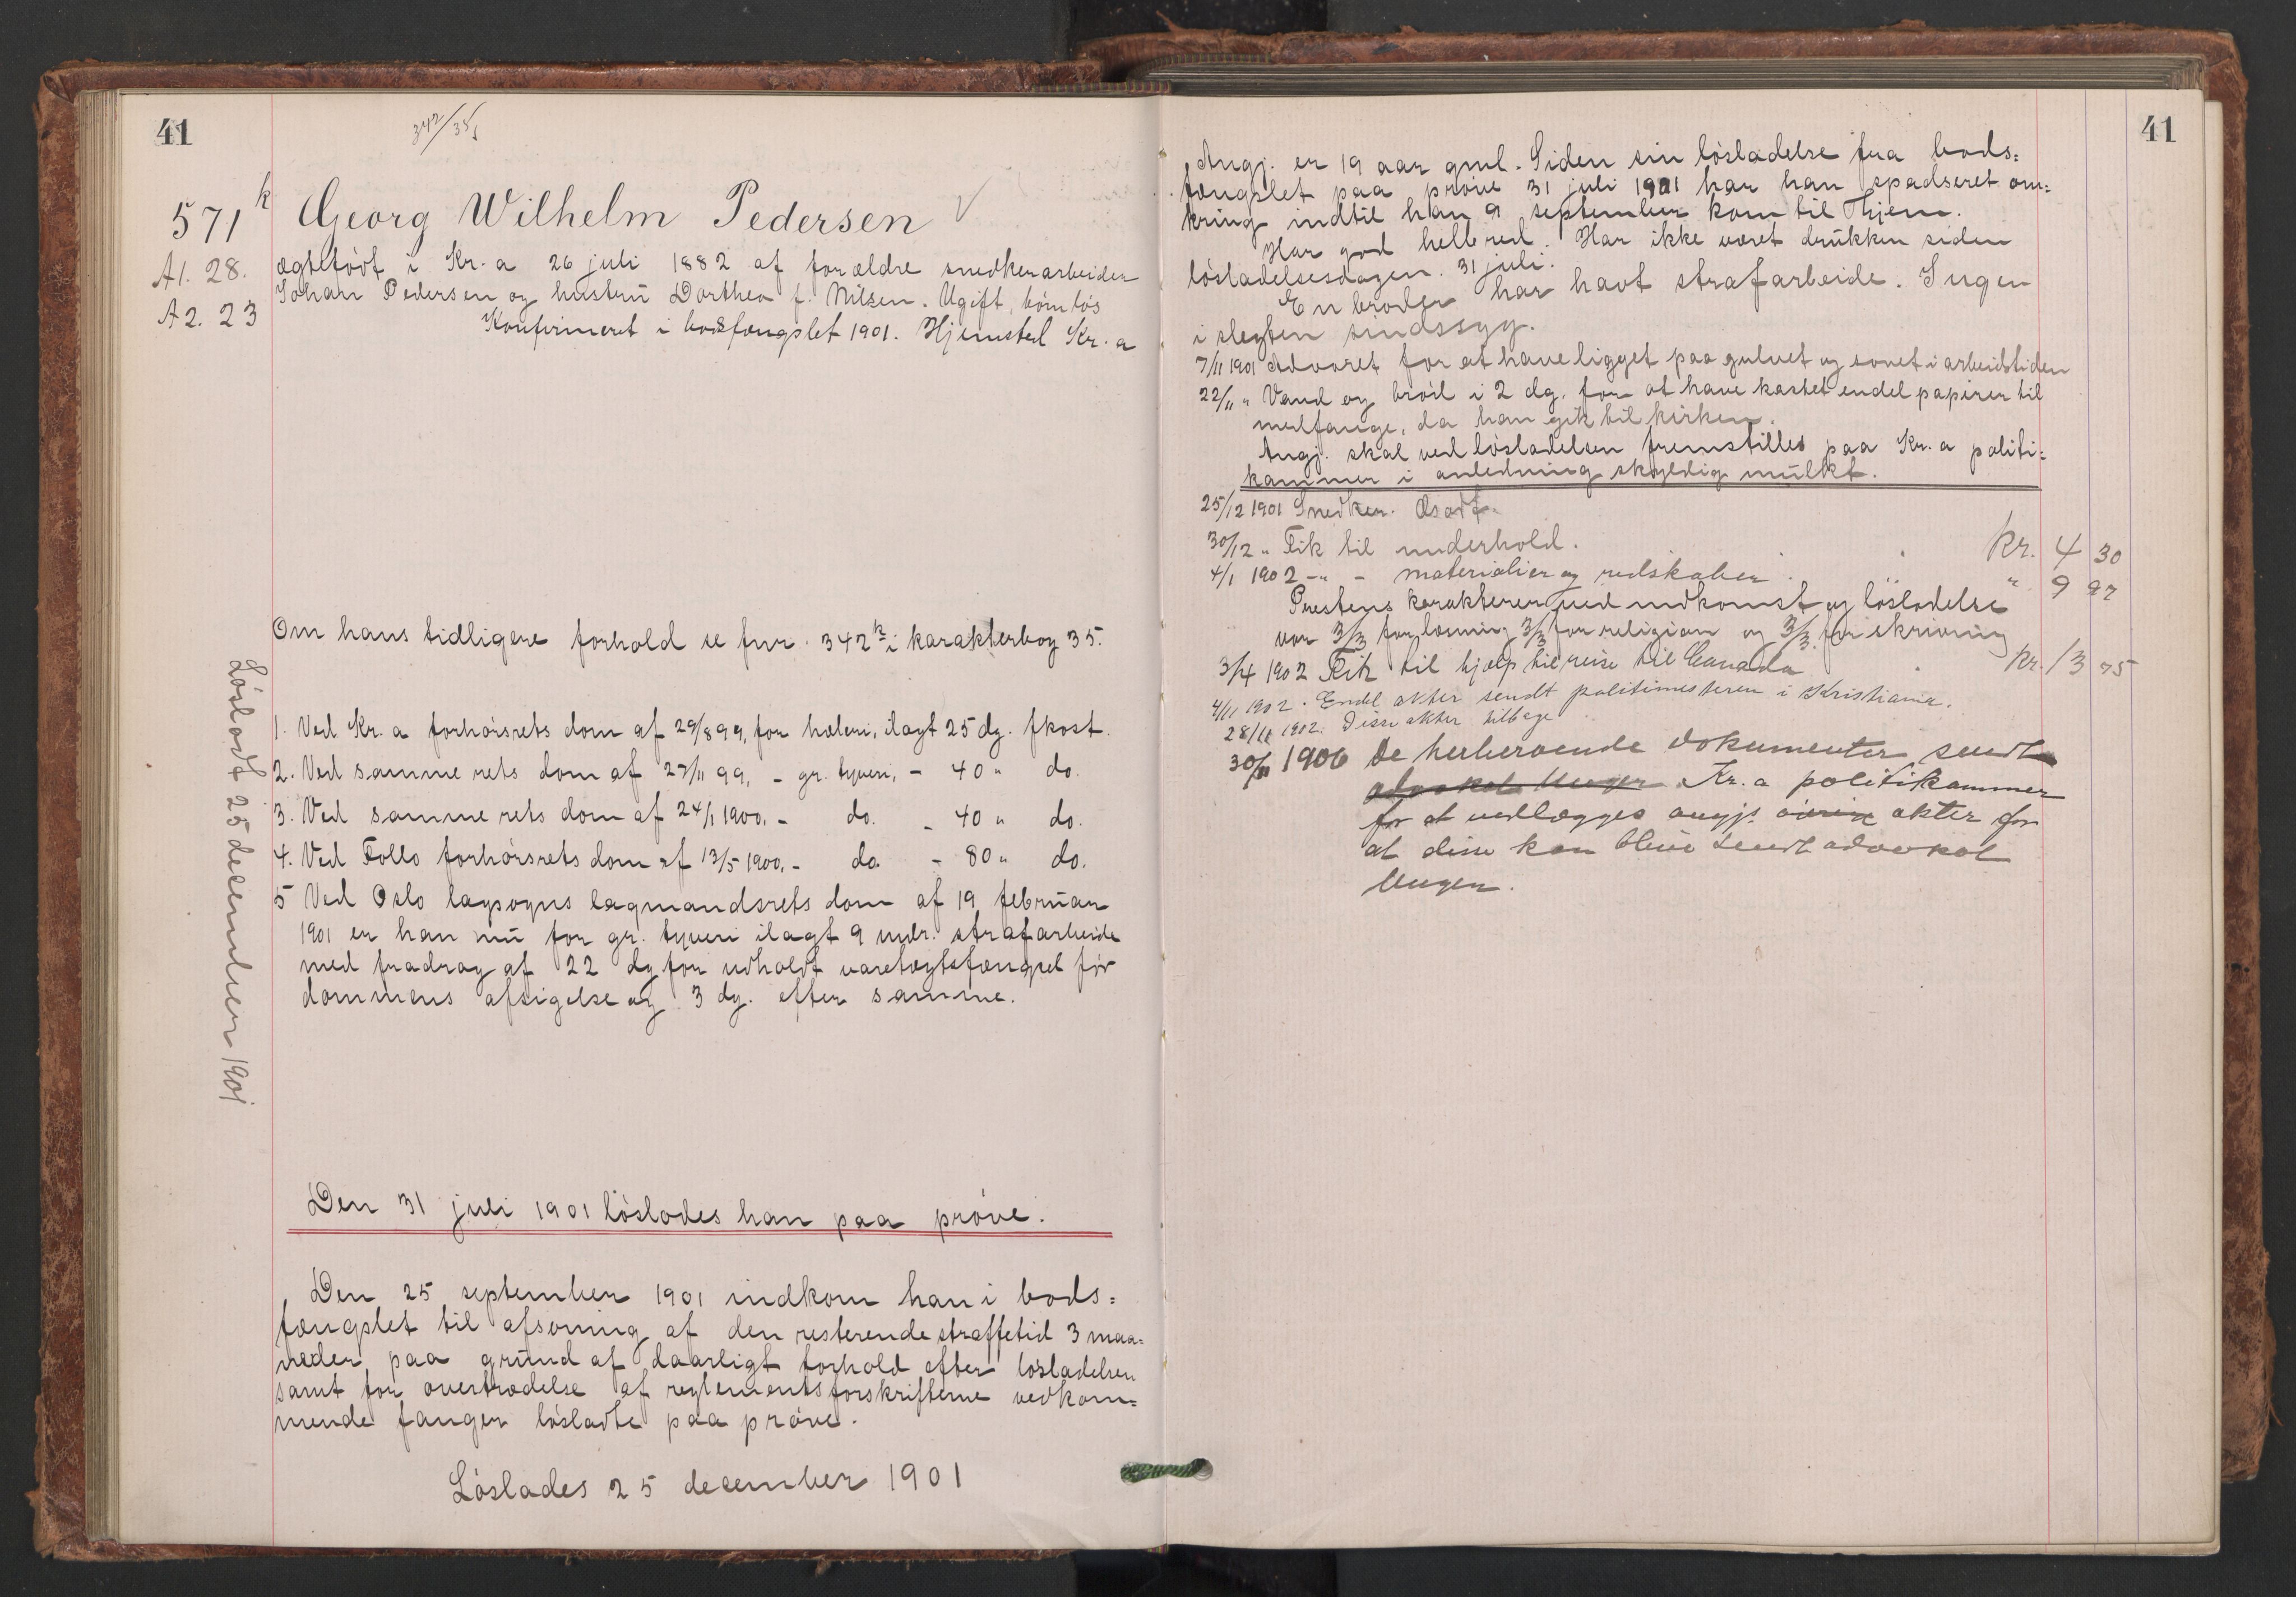 41
342/35,
571 k Georg Wilhelm Pedersen
A1. 28.
A2. 23
ægtefödt i Kr.a 26 juli 1882 af forældre snedkerarbeider
Johan Pedersen og hustru Dorthea f. Nilsen. Ugift, börnlös
Konfirmeret i bodsfængslet 1901. Hjemsted Kr.a
Om hans tidligere forhold se fnr. 342 k i karakterbog 35.
Lösladt 25 december 1901
1. Ved Kr.a forhörsrets dom af 29/8 99, for hæleri, ilagt 25 dg. fkost.
2. Ved samme rets dom af 27/11 99, - gr. tyveri, - 40 " do.
3. Ved samme rets dom af 24/1 1900, - do. - 40 " do.
4. Ved Follo forhörsrets dom af 13/5 1900, - do. - 80 " do.
5 Ved Oslo lagsogns lagmandsrets dom af 19 februar
1901 er han nu for gr. tyveri ilagt 9 mdr. strafarbeide
med fradrag af 22 dg for udholdt varetægtsfængsel för
dommens afsigelse og 3 dg. efter samme.
Den 31 juli 1901 löslades han paa pröve.
Den 25 september 1901 indkom han i bods=
fængslet til afsoning af den resterende straffetid 3 maa=
neder, paa grund af daarligt forhold efter lösladelsen
samt for overtrædelse af reglementsforskrifterne vedkom=
mende fanger lösladte paa pröve.
Löslades 25 december 1901
41
Angj. er 19 aar gml. Siden sin lösladelse fra bods=
fængslet paa pröve 31 juli 1901 har han spadseret om=
kring indtil han 9 september kom til Thjem.
Har god helbred. Har ikke været drukken siden
lösladelsesdagen. 31 juli.
En broder har havt strafarbeide. Ingen
i slegten sindssyg.
7/11 1901 Advaret for at have ligget paa gulvet og sovet i arbeidstiden
22/11 " Vand og bröd i 2 dg. for at have kastet endel papirer til
medfange, da han gik til kirken.
Angj. skal ved lösladelsen fremstilles paa Kr.a politi=
kammer i anledning skyldig mulkt.
25/12 1901 Snedker.
30/12 " Fik til underhold. Kr. 4 30
4/1 1902 -"- - materialier og redskaber. " 9 97
Prestens karakterer ved indkomst og lösladelse
var 3/3 for læsning 3/3 for religion og 3/3 for skrivning
3/4 1902 Fik til hjælp til reise til Canada Kr. 13 75
4/11 1902. Endel akter sendt politimesteren i Kristiania.
28/11 1902. Disse akter tilbage
30/11 1906 De herberoende dokumenter sendt
advokat Unger Kr.a politikammer
for at vedlægges angj. akter for
at disse kan blive sendt advokat
Unger.